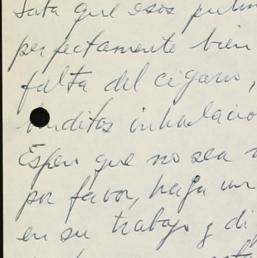 que esos pulm
perfectamente bien
falta del cigarro,
benditas inhalacio
Espero que no sea
por favor, haga un
en su trabajo y di